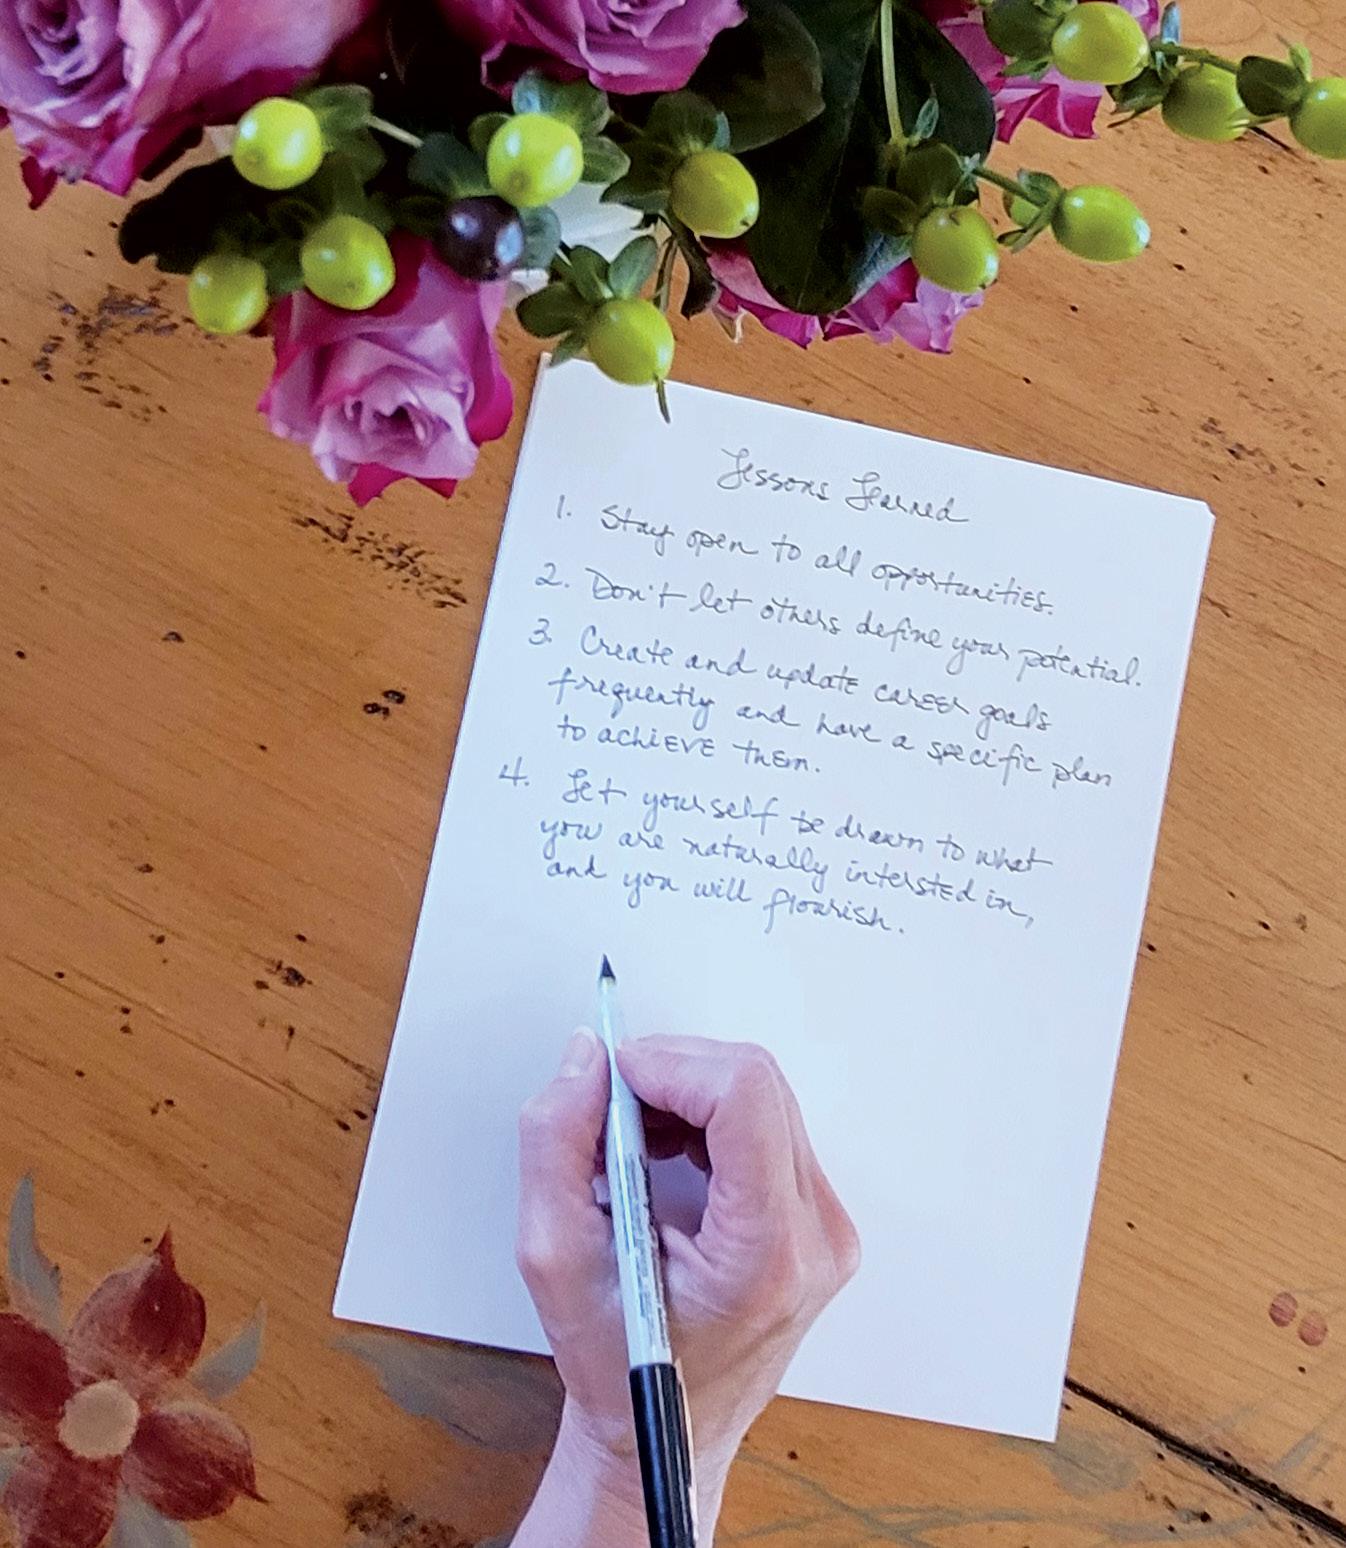 Lessons Learned
1. Stay open to all opportunities.
2. Don't let others define your potential.
3. Create and update career goals
frequently and have a specific plan
to achieve them.
4. Let yourself be drawn to what
you are naturally intersted in,
and you will flourish.